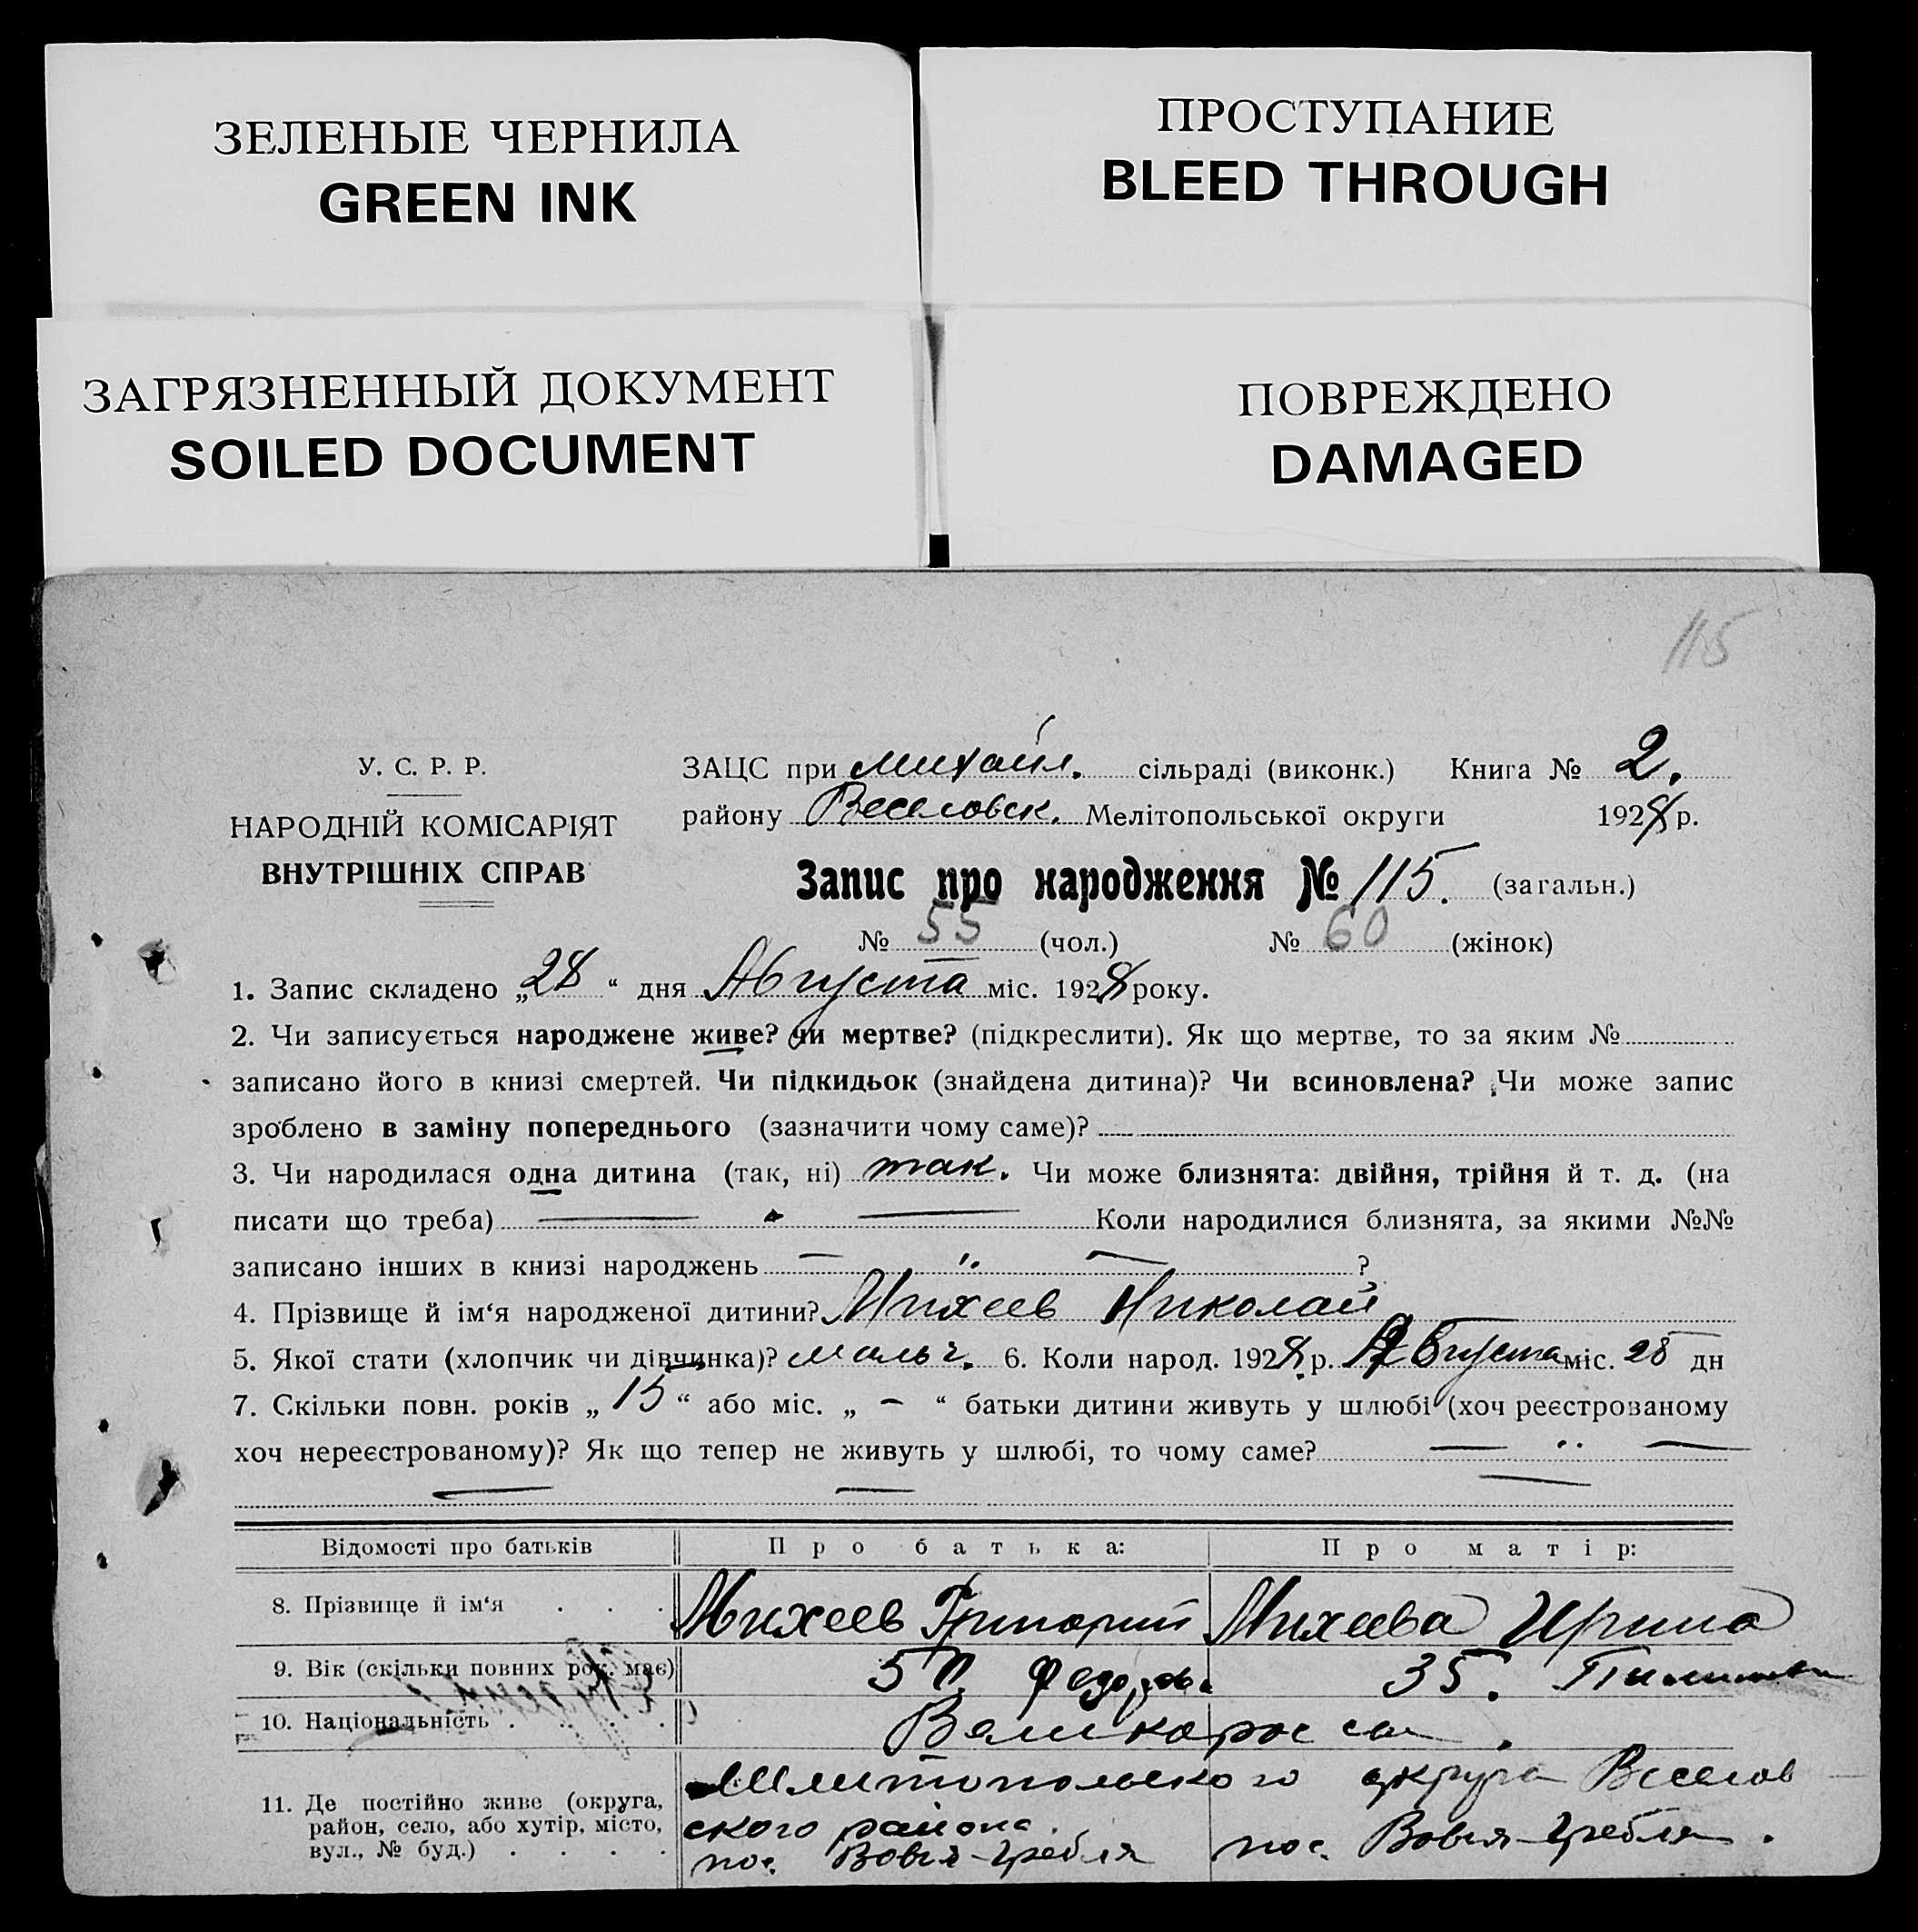 ЗЕЛЕНЫЕ ЧЕРНИЛА
GREEN INK
ПРОСТУПАНИЕ
BLEED THROUGH
ЗАГРЯЗНЕННЫЙ ДОКУМЕНТ
SOILED DOCUMENT
ПОВРЕЖДЕНО
DAMAGED
115
У. С. Р. Р.
НАРОДНІЙ КОМІСАРІЯТ
ВНУТРІШНІХ СПРАВ
ЗАЦС при Михайл. сільраді (виконк.) Книга № 2.
району Веселовск. Мелітопольської округи 1928 р.
Запис про народження № 115. (загальн.)
№ 55 (чол.) № 60 (жінок)
1. Запис складено „28“ дня Августа міс. 1928 року.
2. Чи записується народжене живе? чи мертве? (підкреслити). Як що мертве, то за яким №
записано його в книзі смертей. Чи підкидьок (знайдена дитина)? Чи всиновлена? Чи може запис
зроблено в заміну попереднього (зазначити чому саме)?
3. Чи народилася одна дитина (так, ні) так. Чи може близнята: двійня, трійня й т. д. (на
писати що треба) — — Коли народилися близнята, за якими №№
записано інших в книзі народжень — " — ?
4. Прізвище й ім‘я народженої дитини? Михеев Николай
5. Якої стати (хлопчик чи дівчинка)? мальч. 6. Коли народ. 1928 р. Августа міс. 28 дн
7. Скільки повн. років „15“ або міс. „ – “ батьки дитини живуть у шлюбі (хоч реєстрованому
хоч нереєстрованому)? Як що тепер не живуть у шлюбі, то чому саме? — " —
Відомості про батьків Про батька: Про матір:
8. Прізвище й ім‘я . . . Михеев Григорий Михеева Ирина
9. Вік (скільки повних рок. має) 50. Федоров. 35.
10. Національність . . . . Великоросси.
11. Де постійно живе (округа, район, село, або хутір, місто, вул., № буд.) . . . .
Мелитопольского округа Веселов
ского района.
пос. Вовчя-Гребля пос. Вовчя-Гребля.